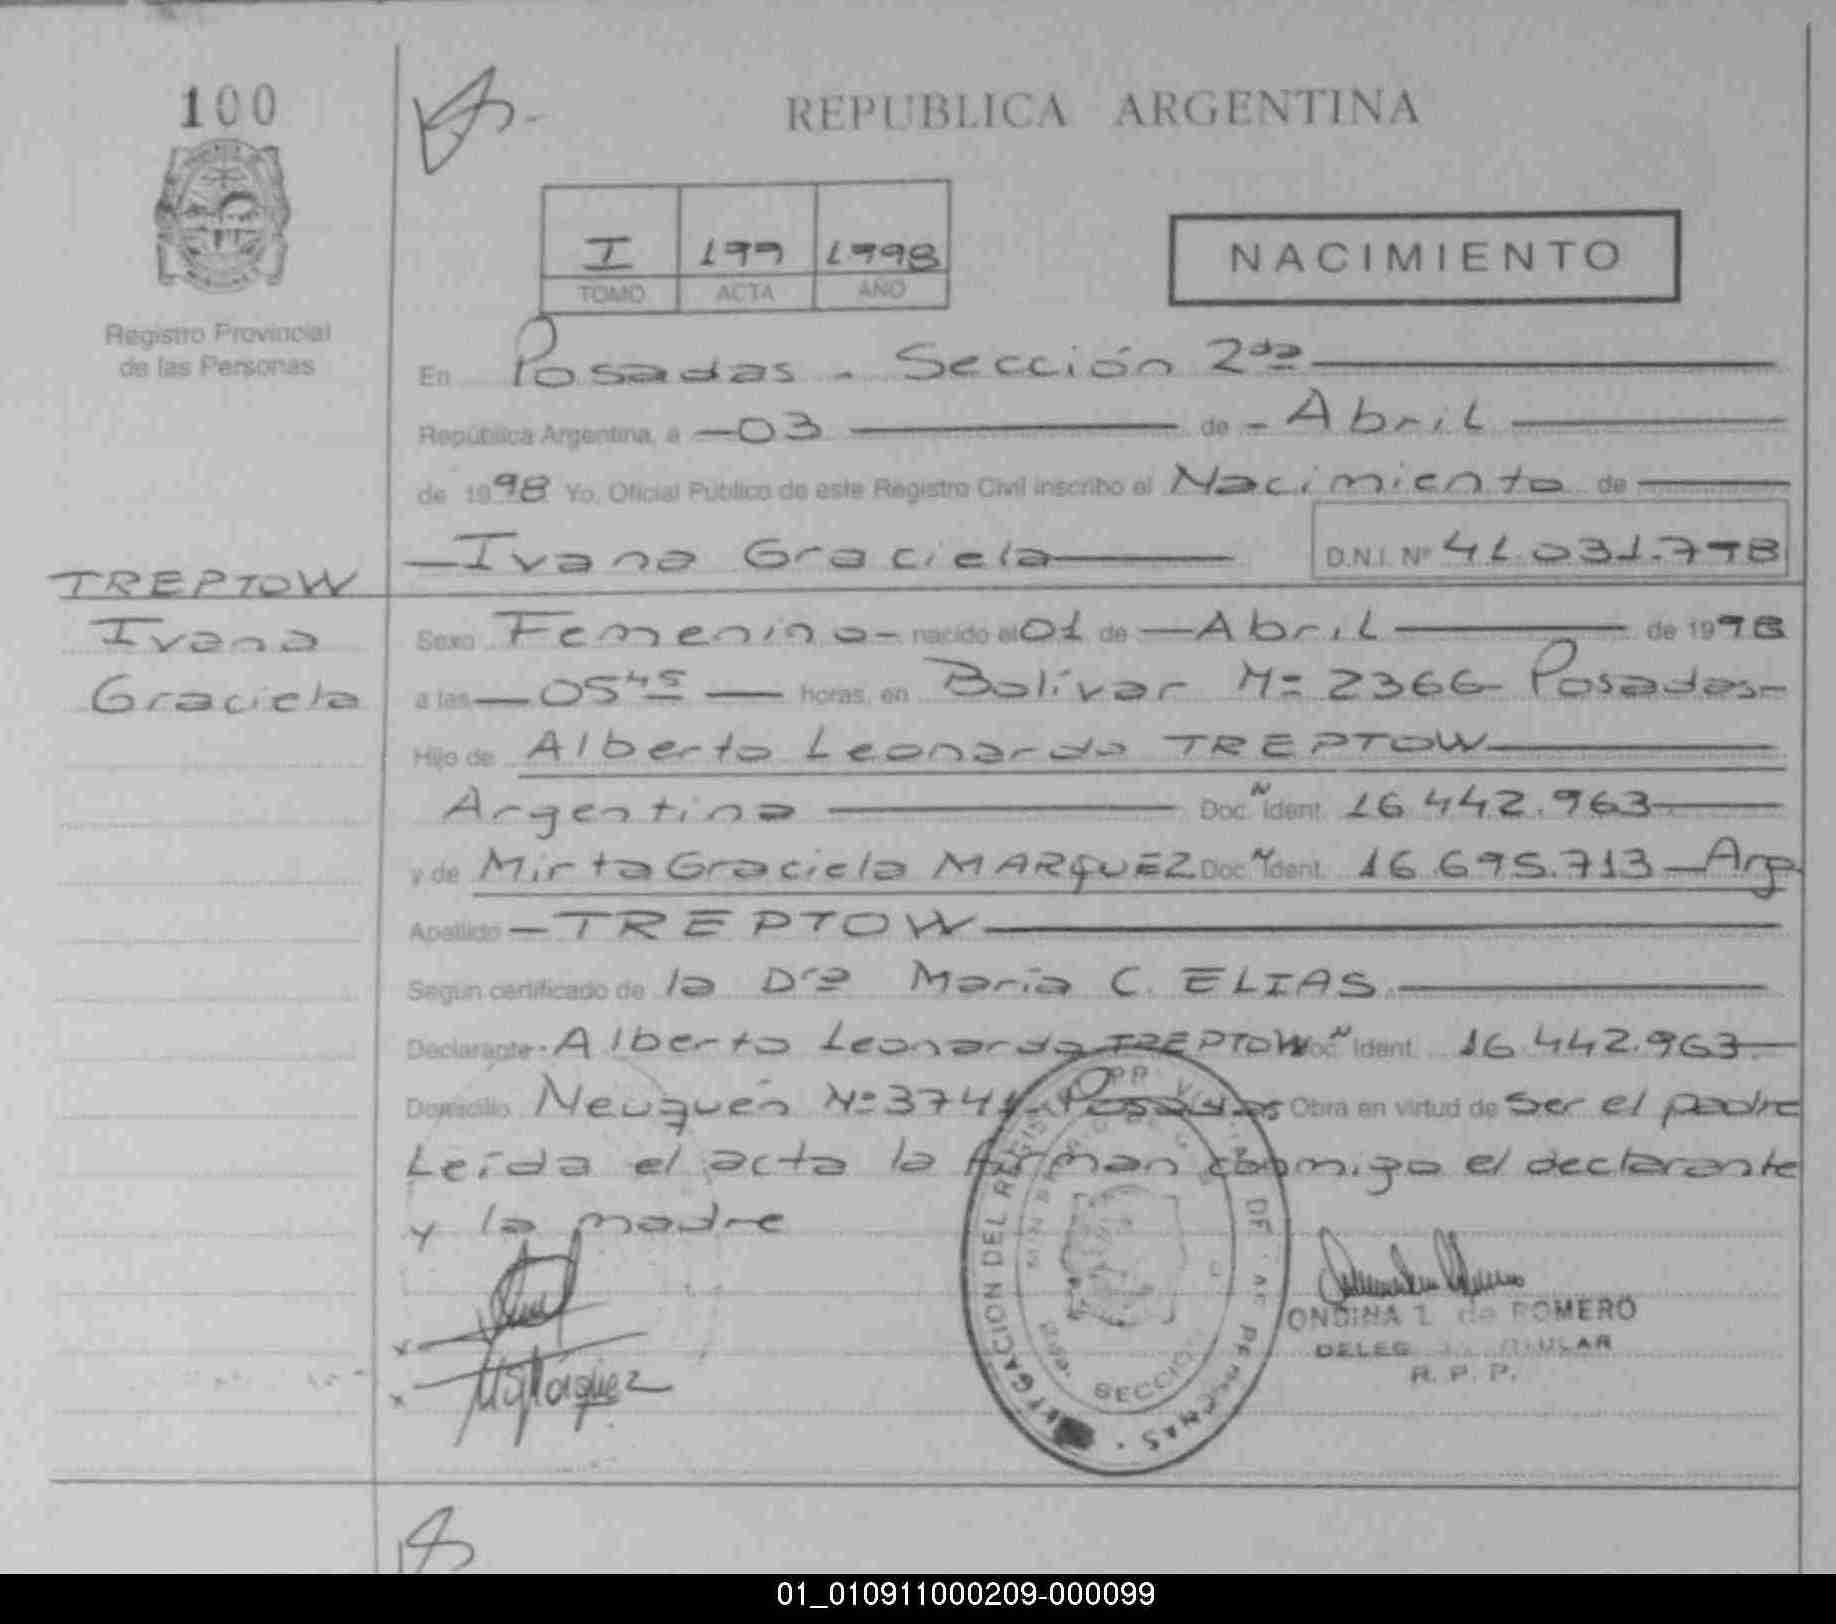 100
REPUBLICA ARGENTINA
I 199 1998
TOMO ACTA AÑO
NACIMIENTO
Registro Provincial
de las Personas
En Posadas - Sección 2da
República Argentina, a 03 de Abril
de 1998 Yo, Oficial Público de este Registro Civil inscribo el Nacimiento de
Ivana Graciela D.N.I. Nº 41.031.798
TREPTOW
Ivana
Graciela
Sexo Femenino nacido el 01 de Abril de 1998
a las 05 45 horas, en Bolívar Nº 2366 Posadas
Hijo de Alberto Leonardo TREPTOW
Argentina Doc. Ident. 16.442.963
y de Mirta Graciela MARQUEZ Doc. Ident. 16.695.713 Arg.
Apellido TREPTOW
Segun certificado de la Dra María C. ELIAS
Declarante Alberto Leonardo TREPTOW Doc. Ident. 16.442.963
Domicilio Neuquén Nº 3741 Posadas Obra en virtud de ser el padre
Leída el acta la firman conmigo el declarante
y la madre
DELEGACION DEL REGISTRO DE PERSONAS
SECCION
ONDINA de ROMERO
TITULAR
R. P. P.
MgMárquez
01_010911000209-000099